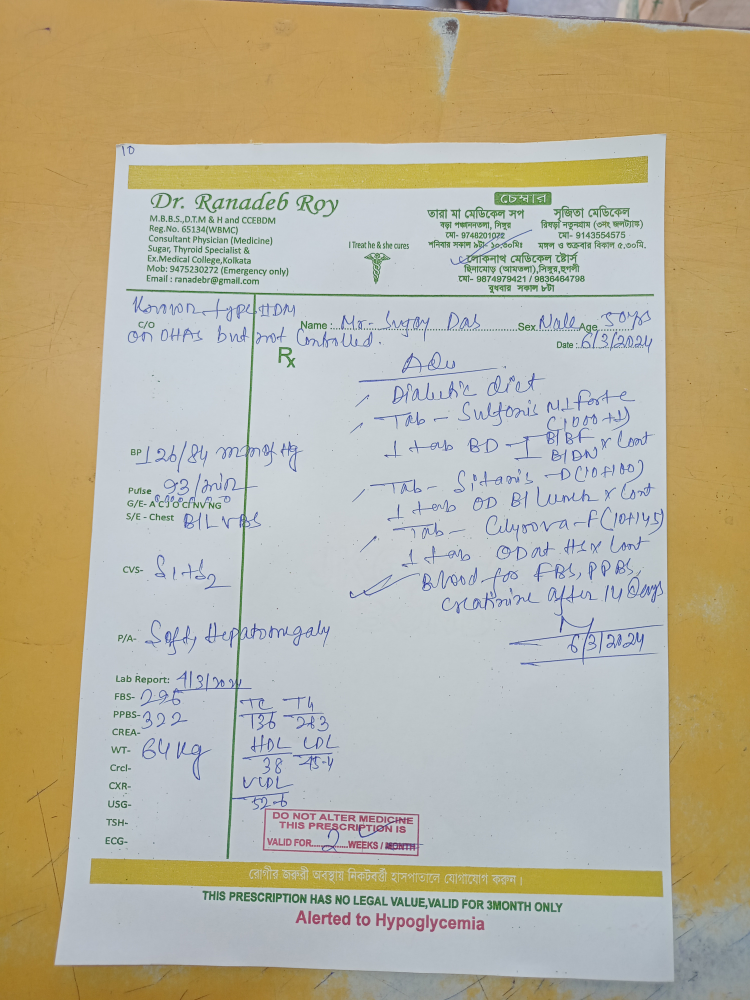 10
Dr. Ranadeb Roy
M.B.B.S.,D.T.M & H and CCEBDM
Reg.No. 65134(WBMC)
Consultant Physician (Medicine)
Sugar, Thyroid Specialist &
Ex.Medical College,Kolkata
Mob: 9475230272 (Emergency only)
Email : ranadebr@gmail.com
I Treat he & she cures
চেম্বার
তারা মা মেডিকেল সপ
বড়া পঞ্চাননতলা, সিঙ্গুর
মো- 9748201072
শনিবার সকাল ৯টা- ১০.৩০মিঃ
সৃজিতা মেডিকেল
রিষড়া নতুনগ্রাম (৩নং জলট্যাঙ্ক)
মো- 9143554575
মঙ্গল ও শুক্রবার বিকাল ৫.৩০মি.
লোকনাথ মেডিকেল ষ্টোর্স
ছিনামোড় (আমতলা),সিঙ্গুর,হুগলী
মো- 9874979421 / 9836464798
বুধবার সকাল ৮টা
Known type II DM
C/O
on OHAs but not Controlled.
Name : Mr- Sujoy Das Sex Male Age 30yrs
Date : 6/3/2024
Rx
Adv
Diabetic diet
Tab - Sulfonis M1 Forte
(1000+1)
1 tab BD - 1 B/BF x Cont
1 B/DN
Tab - Sitanis - D (10+100)
1 tab OD B/ Lunch x Cont
Tab - -F (10+145)
1 tab OD at HS x Cont
Blood for FBS, PPBS,
Creatinine after 14 Days
6/3/2024
BP 126/84 mm of Hg
Pulse 93/min
G/E- A C J O Cl NV NG
S/E - Chest B/L VBS
CVS- S1+S2
P/A- Soft, Hepatomegaly
Lab Report: 4/3/2024
FBS- 296
PPBS- 322
CREA-
WT- 64 kg
Crcl-
CXR-
USG-
TSH-
ECG-
TC TG
136 263
HDL LDL
38 45.4
VLDL
52.6
DO NOT ALTER MEDICINE
THIS PRESCRIPTION IS
VALID FOR 2 WEEKS / MONTH
রোগীর জরুরী অবস্থায় নিকটবর্ত্তী হাসপাতালে যোগাযোগ করুন।
THIS PRESCRIPTION HAS NO LEGAL VALUE,VALID FOR 3MONTH ONLY
Alerted to Hypoglycemia